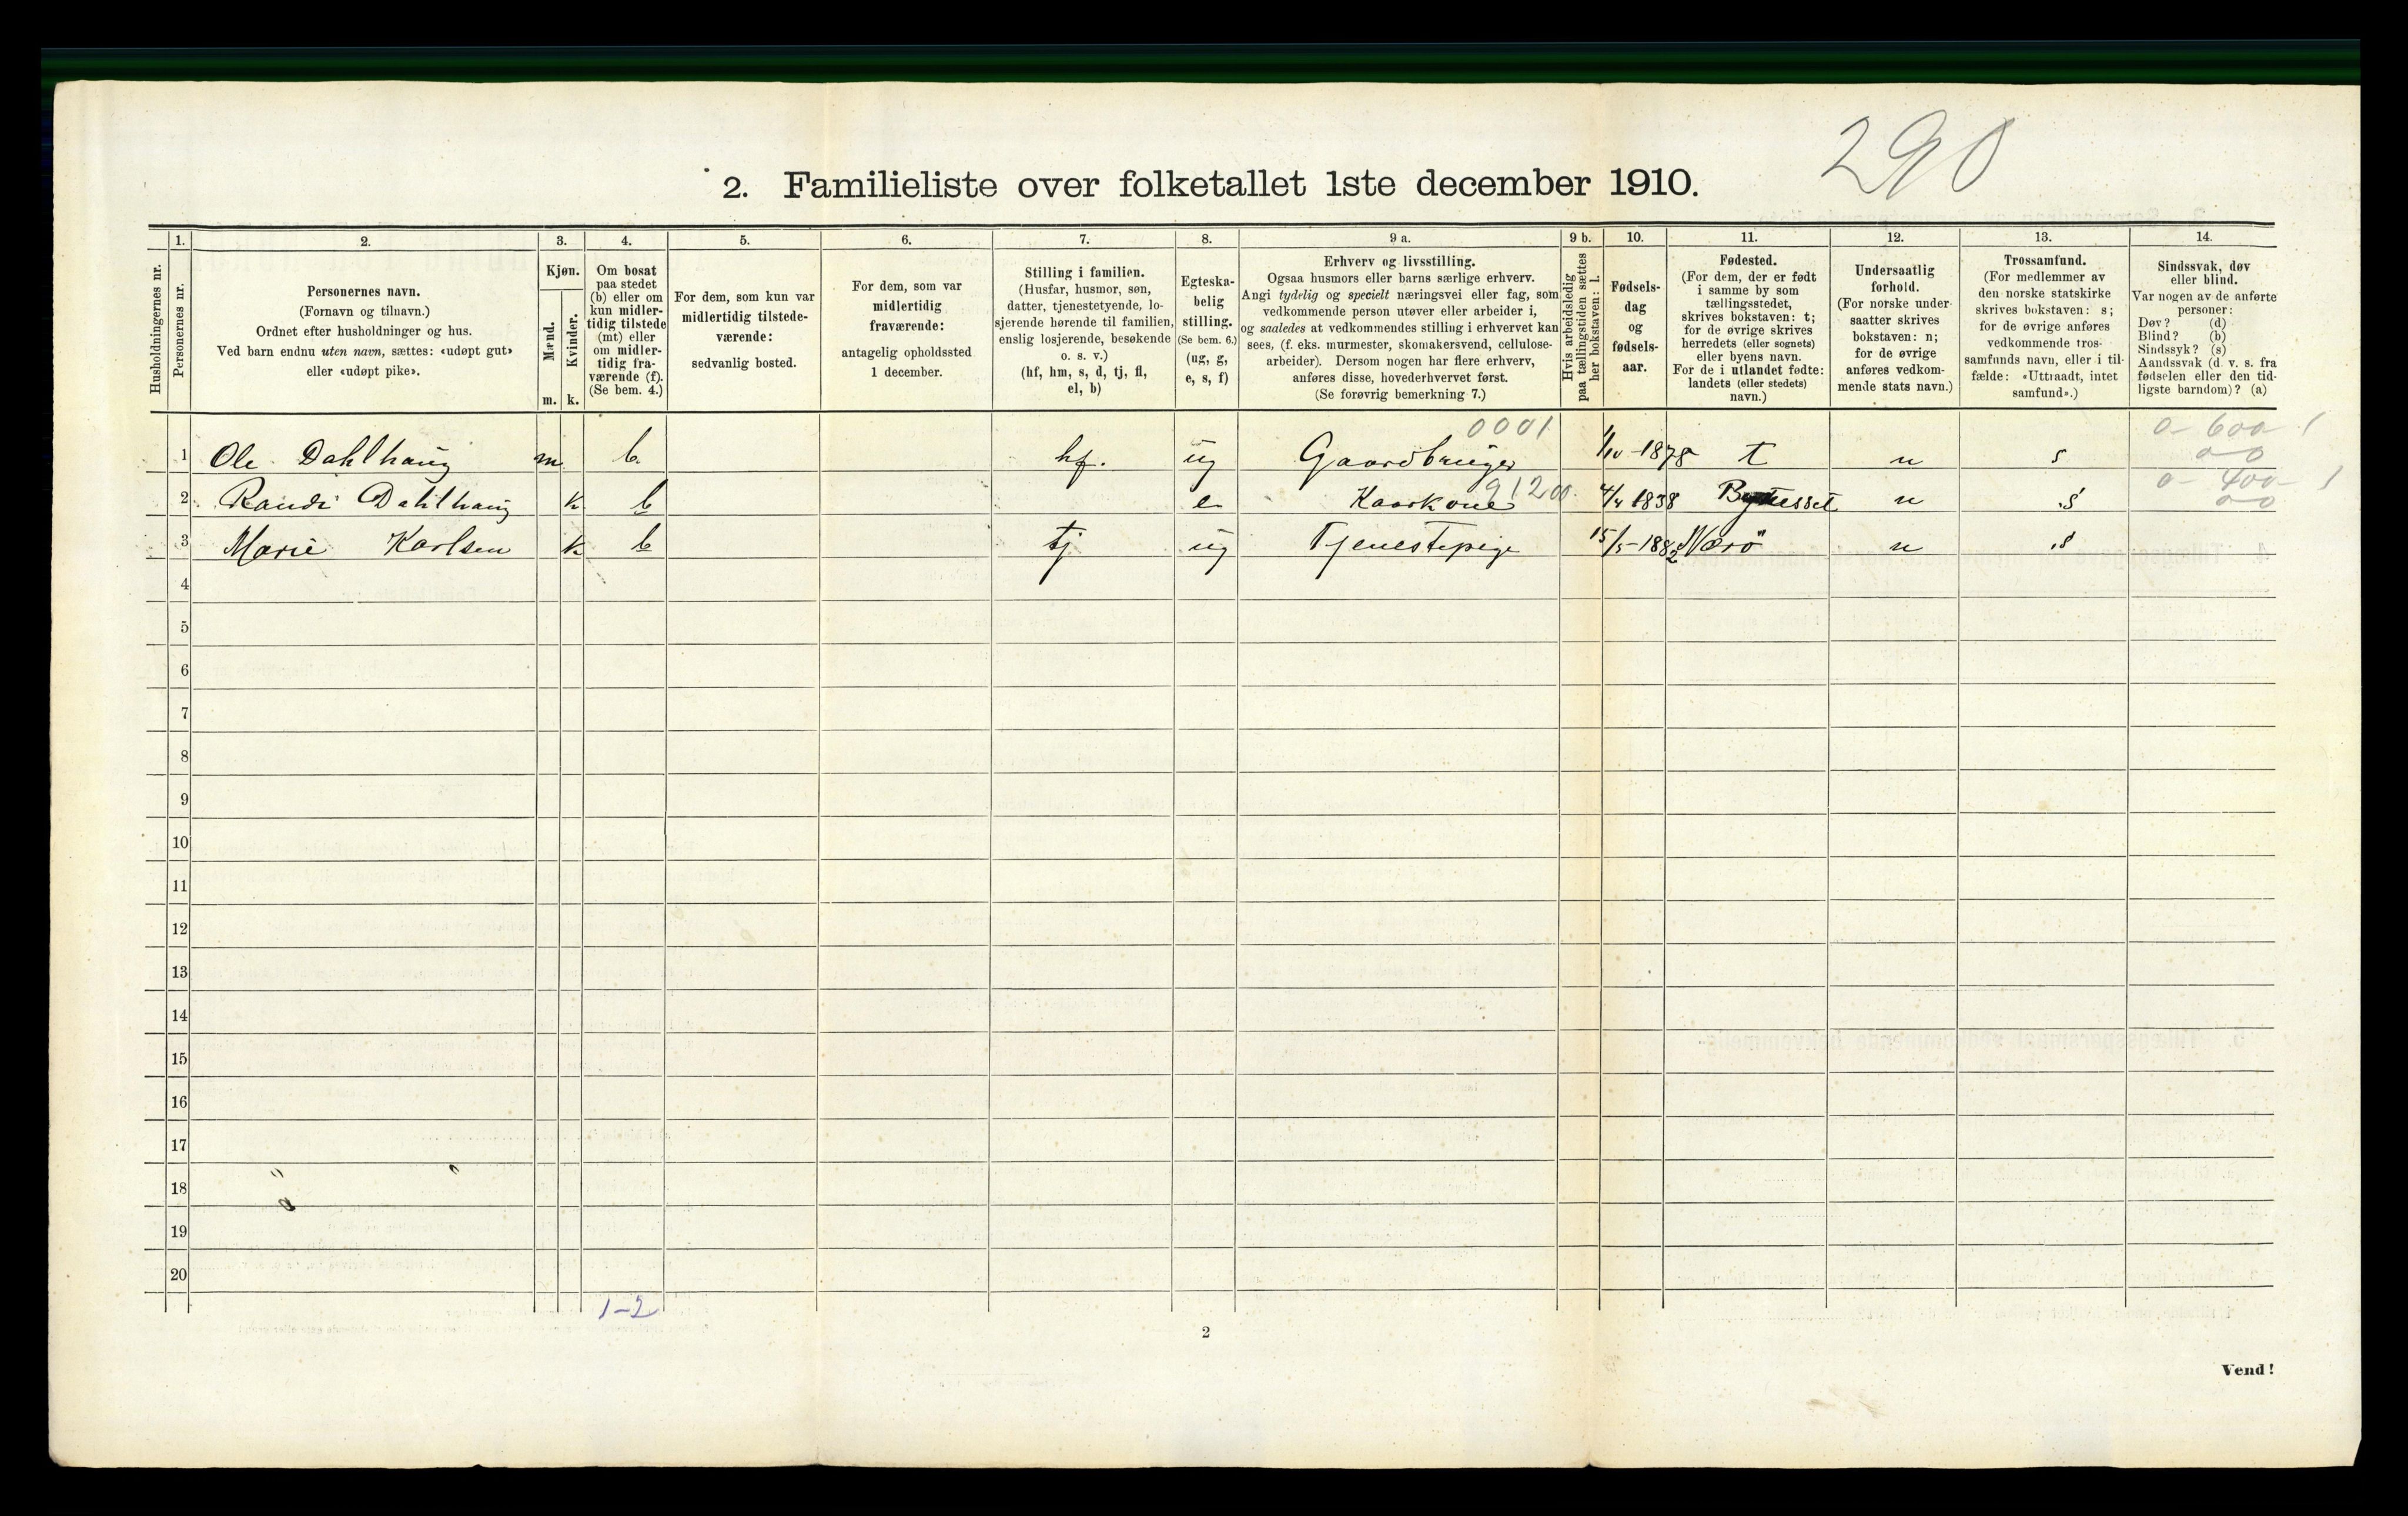 290
2. Familieliste over folketallet 1ste december 1910.
1. 2. 3. 4. 5. 6. 7. 8. 9 a. 9 b. 10. 11. 12. 13. 14.
Husholdningernes nr.
Personernes nr.
Personernes navn.
(Fornavn og tilnavn.)
Ordnet efter husholdninger og hus.
Ved barn endnu uten navn, sættes: «udøpt gut»
eller «udøpt pike».
Kjøn.
Mænd.
Kvinder.
m. k.
Om bosat
paa stedet
(b) eller om
kun midler-
tidig tilstede
(mt) eller
om midler-
tidig fra-
værende (f).
(Se bem. 4.)
For dem, som kun var
midlertidig tilstede-
værende:
sedvanlig bosted.
For dem, som var
midlertidig
fraværende:
antagelig opholdssted
1 december.
Stilling i familien.
(Husfar, husmor, søn,
datter, tjenestetyende, lo-
sjerende hørende til familien,
enslig losjerende, besøkende
o. s. v.)
(hf, hm, s, d, tj, fl,
el, b)
Egteska-
belig
stilling.
(Se bem. 6.)
(ug, g,
e, s, f)
Erhverv og livsstilling.
Ogsaa husmors eller barns særlige erhverv.
Angi tydelig og specielt næringsvei eller fag, som
vedkommende person utøver eller arbeider i,
og saaledes at vedkommendes stilling i erhvervet kan
sees, (f. eks. murmester, skomakersvend, cellulose-
arbeider). Dersom nogen har flere erhverv,
anføres disse, hovederhvervet først.
(Se forøvrig bemerkning 7.)
Hvis arbeidsledig
paa tællingstiden sættes
her bokstaven: l.
Fødsels-
dag
og
fødsels-
aar.
Fødested.
(For dem, der er født
i samme by som
tællingsstedet,
skrives bokstaven: t;
for de øvrige skrives
herredets (eller sognets)
eller byens navn.
For de i utlandet fødte:
landets (eller stedets)
navn.)
Undersaatlig
forhold.
(For norske under-
saatter skrives
bokstaven: n;
for de øvrige
anføres vedkom-
mende stats navn.)
Trossamfund.
(For medlemmer av
den norske statskirke
skrives bokstaven: s;
for de øvrige anføres
vedkommende tros-
samfunds navn, eller i til-
fælde: «Uttraadt, intet
samfund».)
Sindssvak, døv
eller blind.
Var nogen av de anførte
personer:
Døv? (d)
Blind? (b)
Sindssyk? (s)
Aandssvak (d. v. s. fra
fødselen eller den tid-
ligste barndom)? (a)
0001 0-600-1
1 Ole Dahlhaug m b hf. ug Gaardbruger 1/10-1878 t n s 00
912 00. 0-400-1
2 Randi Dahlhaug k b e Kaarkone 4/4 1838 Bynesset n s 00
3 Marie Karlsen k b tj ug Tjenestepige 15/5-1882 Nærö n s
4
5
6
7
8
9
10
11
12
13
14
15
16
17
18
19
20
1-2
2
Vend!